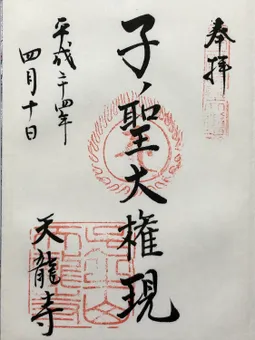 奉拝
子ノ聖大権現
天龍寺
平成二十四年
四月十日